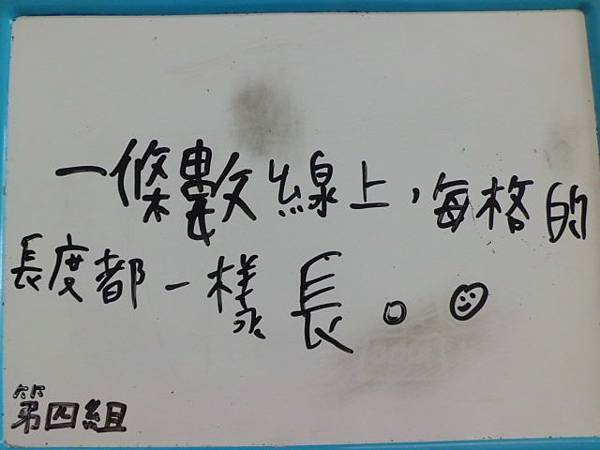 一條數線上，每格的
長度都一樣長。
第四組